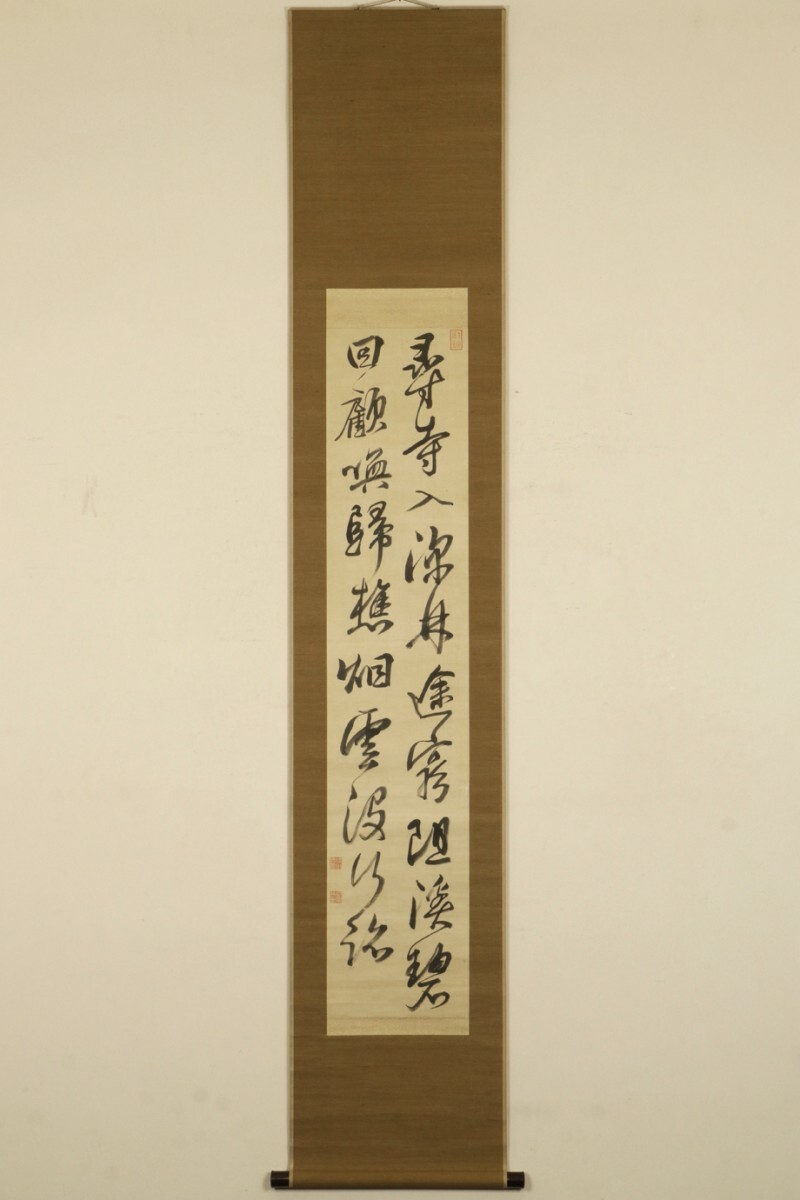 尋寺入深林途窮阻溪碧
回顧喚歸樵烟雲没行跡